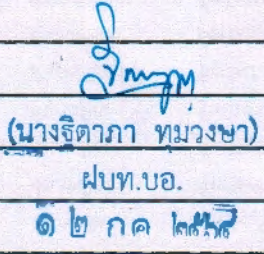 (นางธิดาภา ทุมวงษา)
ฝบท.บอ.
๑ ๒ กค